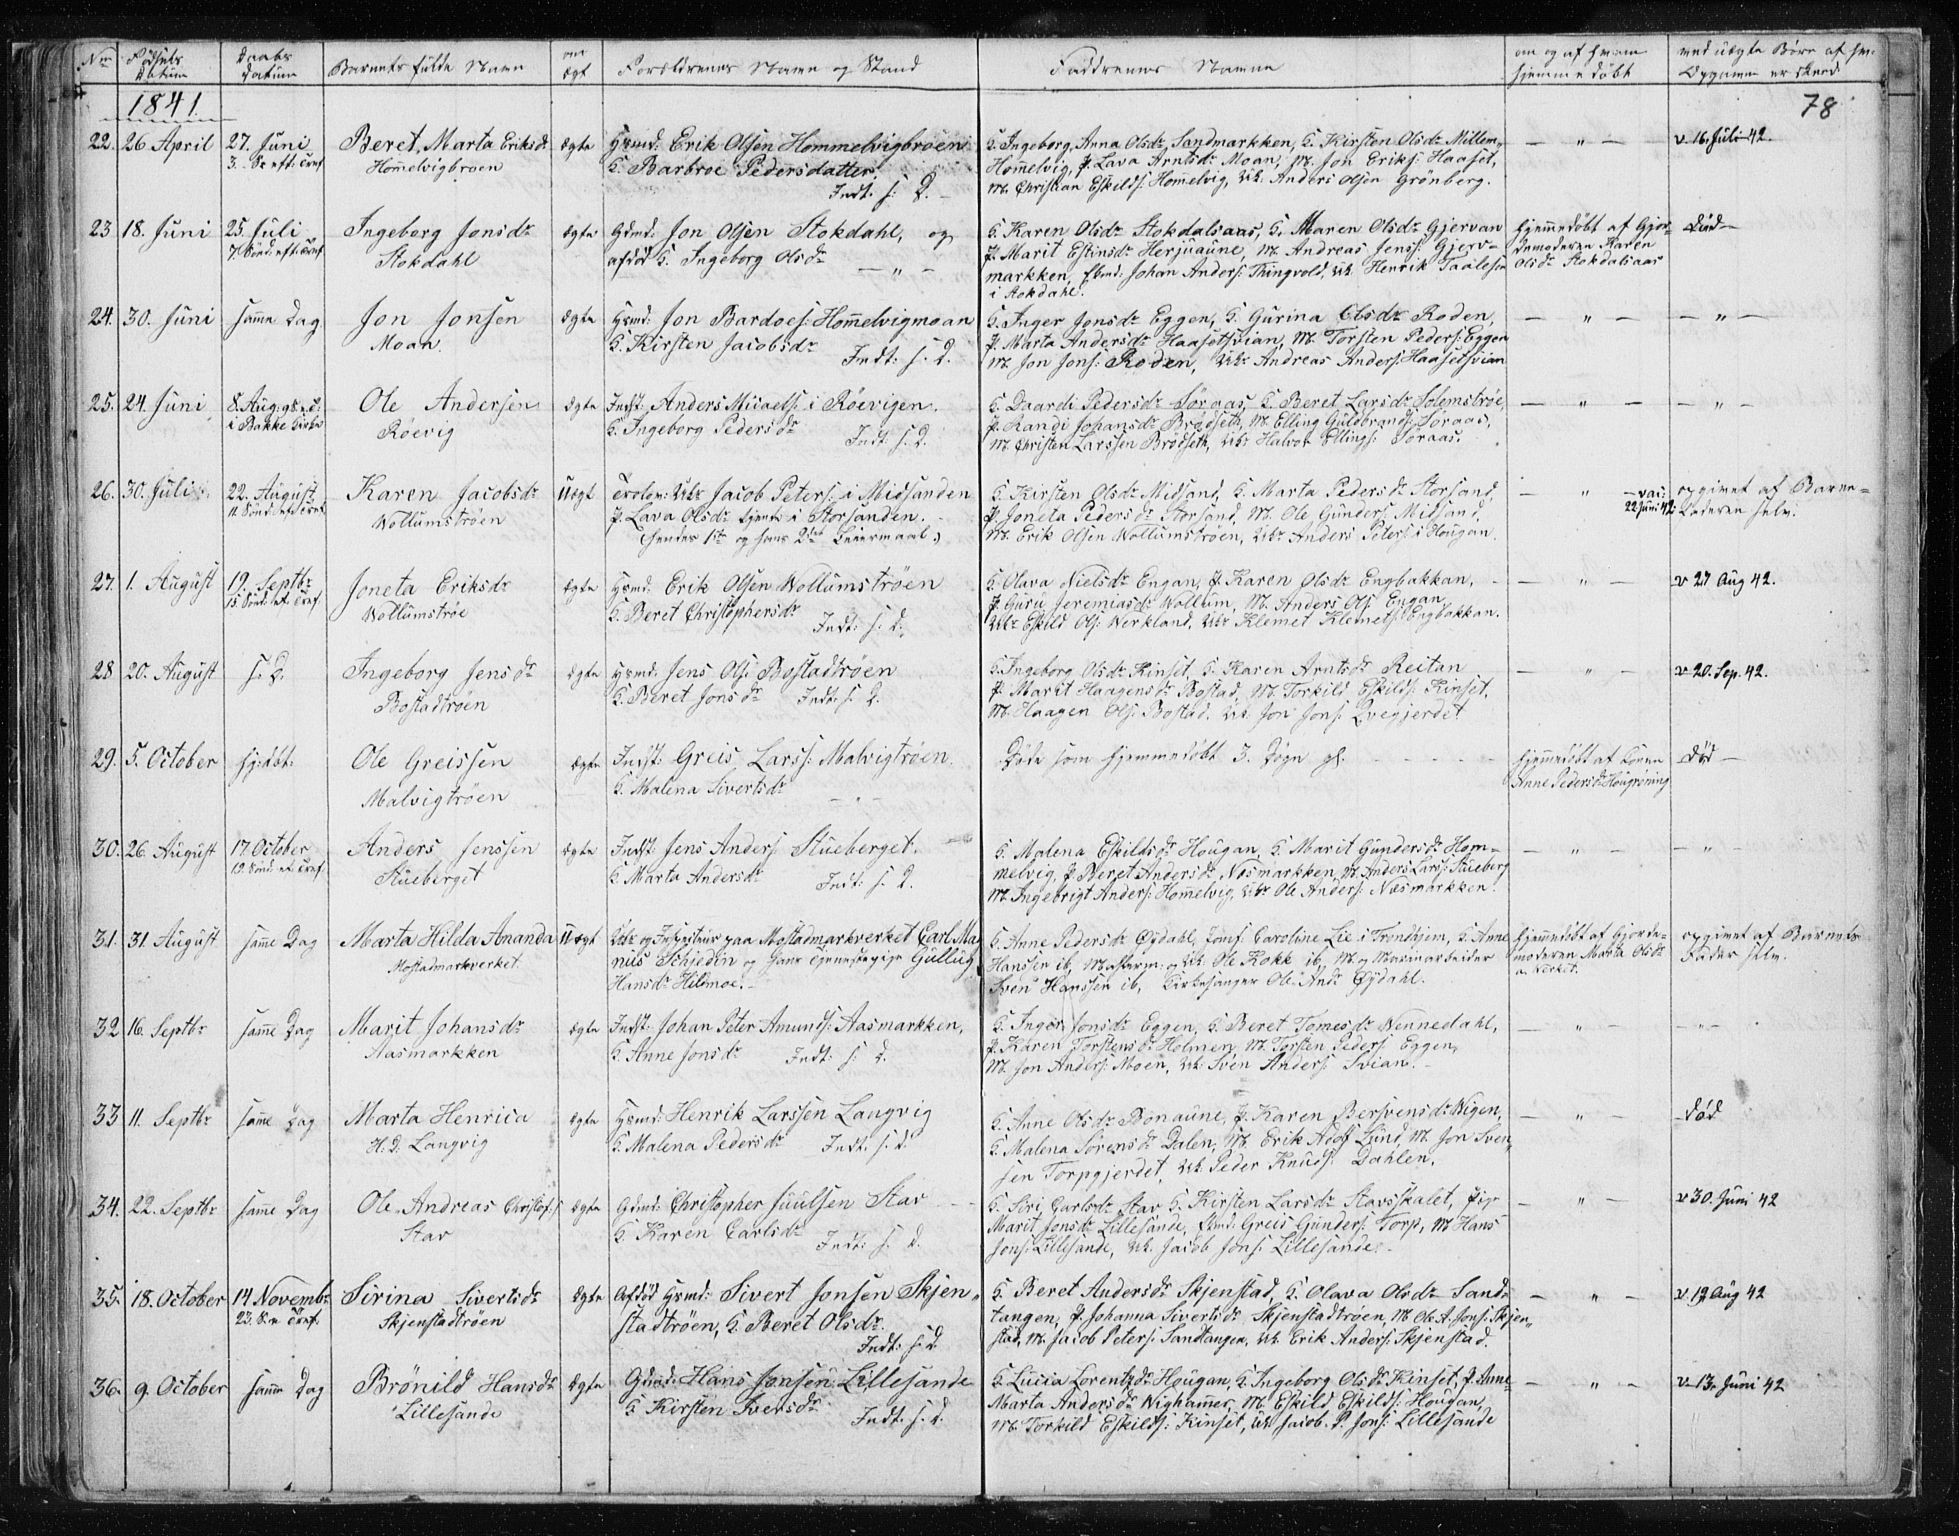 78
1841.
Nro
Fødsels Datum
Daabs Datum
Barnets fulde Navn
om ægt
Forældrenes Navn og Stand
Faddrenes Navne
om og af hvem hjemmedøbt
ved uægte Børn af hv:
Opgaven er skeed
22. 26 April
27. Juni
3. S: eft: Tref
Beret Marta Eriksdr
Hommelvigbroen
ægte
Hsmd: Erik Olsen Hommelvigbroen
K. Barbroe Pedersdatter.
Indt: s: D.
K. Ingeborg Anna Olsdr Sandmarkken, K. Kirsten Olsdr Millem„
Hommelvig, P. Lava Arntsdr Moan, M. Jon Eriks: Haaset,
M. Christian Eskilds: Hommelvig, Uk. Anders Olsen Grönberg.
— „ —
v. 16. Juli 42.
23 18. Juni
25. Juli
7. Sönd: eft: Tref
Ingeborg Jonsdr
Stokdahl
ægte
Gdmd: Jon Olsen Stokdahl, og
afdöd K. Ingeborg Olsdr — „ —
K. Karen Olsdr Stokdalsaas, K. Maren Olsdr Gjervan
P. Marit Estinsdr Herjuaune, M. Andreas Jens: Gjerv-
markken, Johan Anders: Thingvold, Uk. Henrik Taalesen
i Stokdahl.
Hjemmedöbt af Gjor-
demoderen Karen
Olsdr Stokdalsaas
Död —
24. 30. Juni
samme Dag
Jon Jonsen
Moan.
ægte
Hsmd: Jon Bardoes: Hommelvigmoan
K. Kirsten Jacobsdr Indt: s. D.
K. Inger Jonsdr Eggen, K. Gurina Olsdr Roden,
P. Marta Andersdr Haasetsvian, M. Torsten Peders: Eggen
M. Jon Jons: Roden, Uk: Andreas Anders: Haasetsvian
— „ —
— „ —
25. 24. Juni
8. Aug:
i Bakke Kirke
Ole Andersen
Röevig
ægte
Indst: Anders Micaels: i Röevigen.
K. Ingeborg Pedersdr Indt: s. D.
K. Daardi Pedersdr Söraas, K. Beret Larsdr Solemströe,
P. Randi Johansdr Brödseth, M. Elling Guldbrands: Söraas,
M. Christen Larssen Brödseth, Uk: Halvor Ellings: Söraas.
— „ —
— „ —
26. 30. Juli
22. August,
11. Sönd: eft: Tref
Karen Jacobsdr
Wollumströen
uægt
Trolov: Uk: Jacob Peters: i Midsanden
P. Lava Olsdr tjente i Storsanden.
(hendes 1ste og hans 2det Leiermaal:)
K. Kirsten Olsdr Midsand, K. Marta Pedersdr Storsand,
P. Joneta Pedersdr Storsand, M. Ole Gunders: Midsand,
M. Erik Olsen Wollumströen, Uk: Anders Peters: i Hougan.
— „ — vac:
22 Juni 42
opgivet af Barne-
faderen selv.
27. 1. August
19. Septbr
15. Sönd: eft: Tref.
Joneta Eriksdr
Wollumströe
ægte
Hsmd: Erik Olsen Wollumströen
K. Beret Christophersdr Indt: s: D:
K. Olava Nielsdr Engan, P. Karen Olsdr Engbakkan,
P. Guru Jeremiasdr Wollum, M. Anders Ols: Engan,
Uk: Eskild Ols: Werkland, Uk: Klemet Klemets: Engbakkan.
— „ —
v. 27 Aug 42.
28 20. August
s. D.
Ingeborg Jensdr
Bostadtröen
ægte
Hsmd: Jens Ols: Bostadtröen
K. Beret Jonsdr Indt: s. D.
K. Ingeborg Olsdr Kinset, K. Karen Arntsdr Reitan
P. Marit Haagensdr Bostad, M. Torkild Eskilds: Kinset,
M. Haagen Ols: Bostad. Uk. Jon Jons: Qvegjerdet
— „ —
v. 20. Sep. 42.
29. 5. October
hj:döbt:
Ole Greissen
Malvigtröen
ægte
Indst: Greis Larss: Malvigtröen.
K. Malena Sivertsdr — „ —
Döde som hjemmedöbt 3. Dögn gl.
hjemmedöbt af Konen
Anne Pedersdr Hougröning
död —
30. 26. August
17. October
19. Sönd: eft: Tref.
Anders Jenssen
Stueberget
ægte
Indst: Jens Anders: Stueberget.
K. Marta Andersdr Indt: s. D.
K. Malena Eskildsdr Hougan, K. Marit Gundersdr Hom-
melvig, P. Beret Andersdr Næsmarkken, M. Anders Lars: Stueberg
M. Ingebrigt Anders: Hommelvig, Uk: Ole Anders: Næsmarkken.
— „ —
— „ —
31. 31. August
samme Dag
Marta Hilda Ananda
Mostadmarkverket
uægt
Uk: og Inspecteur paa Mostadmarkverket Carl Mag
nus Schjedin og hans Gullug
Hansdr Hilmoe.
K. Anne Pedersdr Öydahl, Jomf: Caroline Lie i Trondhjem, K. Anne
Hanssen ib, Uk. Ole Kokk ib, M. og Masovnarbeider
Sven Hanssen ib, Kirkesanger Ole Andr Öydahl.
hjemmedöbt af Gjorde-
moderen Marta Olsdr
v. Verket.
opgivet af Barnets
Fader selv.
32 16. Septbr
samme Dag
Marit Johansdr
Aasmarkken
ægte
Indst: Johan Peter Amunds: Aasmarkken,
K. Anne Jonsdr Indt: s. D.
K. Inger Jonsdr Eggen, K. Beret Tomesdr Wennedahl,
P. Karen Torstensdr Holmen, M. Torsten Peders: Eggen,
M. Jon Anders: Moen, Uk Sven Anders: Svian.
— „ —
— „ —
33 11. Septbr
samme Dag
Marta Henrica
H. D. Langvig
ægte
Hsmd: Henrik Larssen Langvig
K. Malena Pedersdr Indt: s. D.
K. Anne Olsdr Bonaune, P. Karen Bersvensdr Wigen,
K. Malena Sörensdr Dalen, M. Erik Adolf Lund, M. Jon Sven„
sen Torpgjerdet, Uk: Peder Knuds: Dahlen.
— „ —
död
34. 22. Septbr
samme Dag
Ole Andreas Christof:s
Stav
ægte
Gdmd: Christopher Juulsen Stav
K. Karen Carlsdr Indt: s. D.
K. Siri Carlsdr Stav K. Kirsten Larsdr Stavsskalet, Pig
Marit Jonsdr Lillesande, Greis Gunders: Torp, M Hans
Jons: Lillesande, Uk. Jacob Jons: Lillesande.
— „ —
v. 30. Juni 42
35. 18. October
14 Novembr
23. S: e: Tref.
Sirina Sivertsdr
Skjenstadtröen
ægte
Afdöd Hsmd: Sivert Jonsen Skjen„
stadtröen, K. Beret Olsdr.
Indt: s. D.
K. Beret Andersdr Skjenstad, K. Olava Olsdr Sand-
tangen, P. Johanna Sivertsdr Skjenstadtröen, M Ole A. Jons: Skjen„
stad, M. Jacob Peters: Sandtangen, Uk. Erik Anders: Skjenstad.
— „ —
v. 19 Aug 42
36. 9. October
samme Dag
Brönild Hansdr
Lillesande
ægte
Gdmd: Hans Jonsen Lillesande
K Kirsten Iversdr Indt: s. D.
K. Lucia Lorentzdr Hougan, K. Ingeborg Olsdr Kinset, P. Anne
Marta Andersdr Wighammer, M. Eskild Eskilds: Hougan,
M. Torkild Eskilds: Kinset, Uk Jacob. P. Jons: Lillesande
— „ —
v. 13. Juni 42